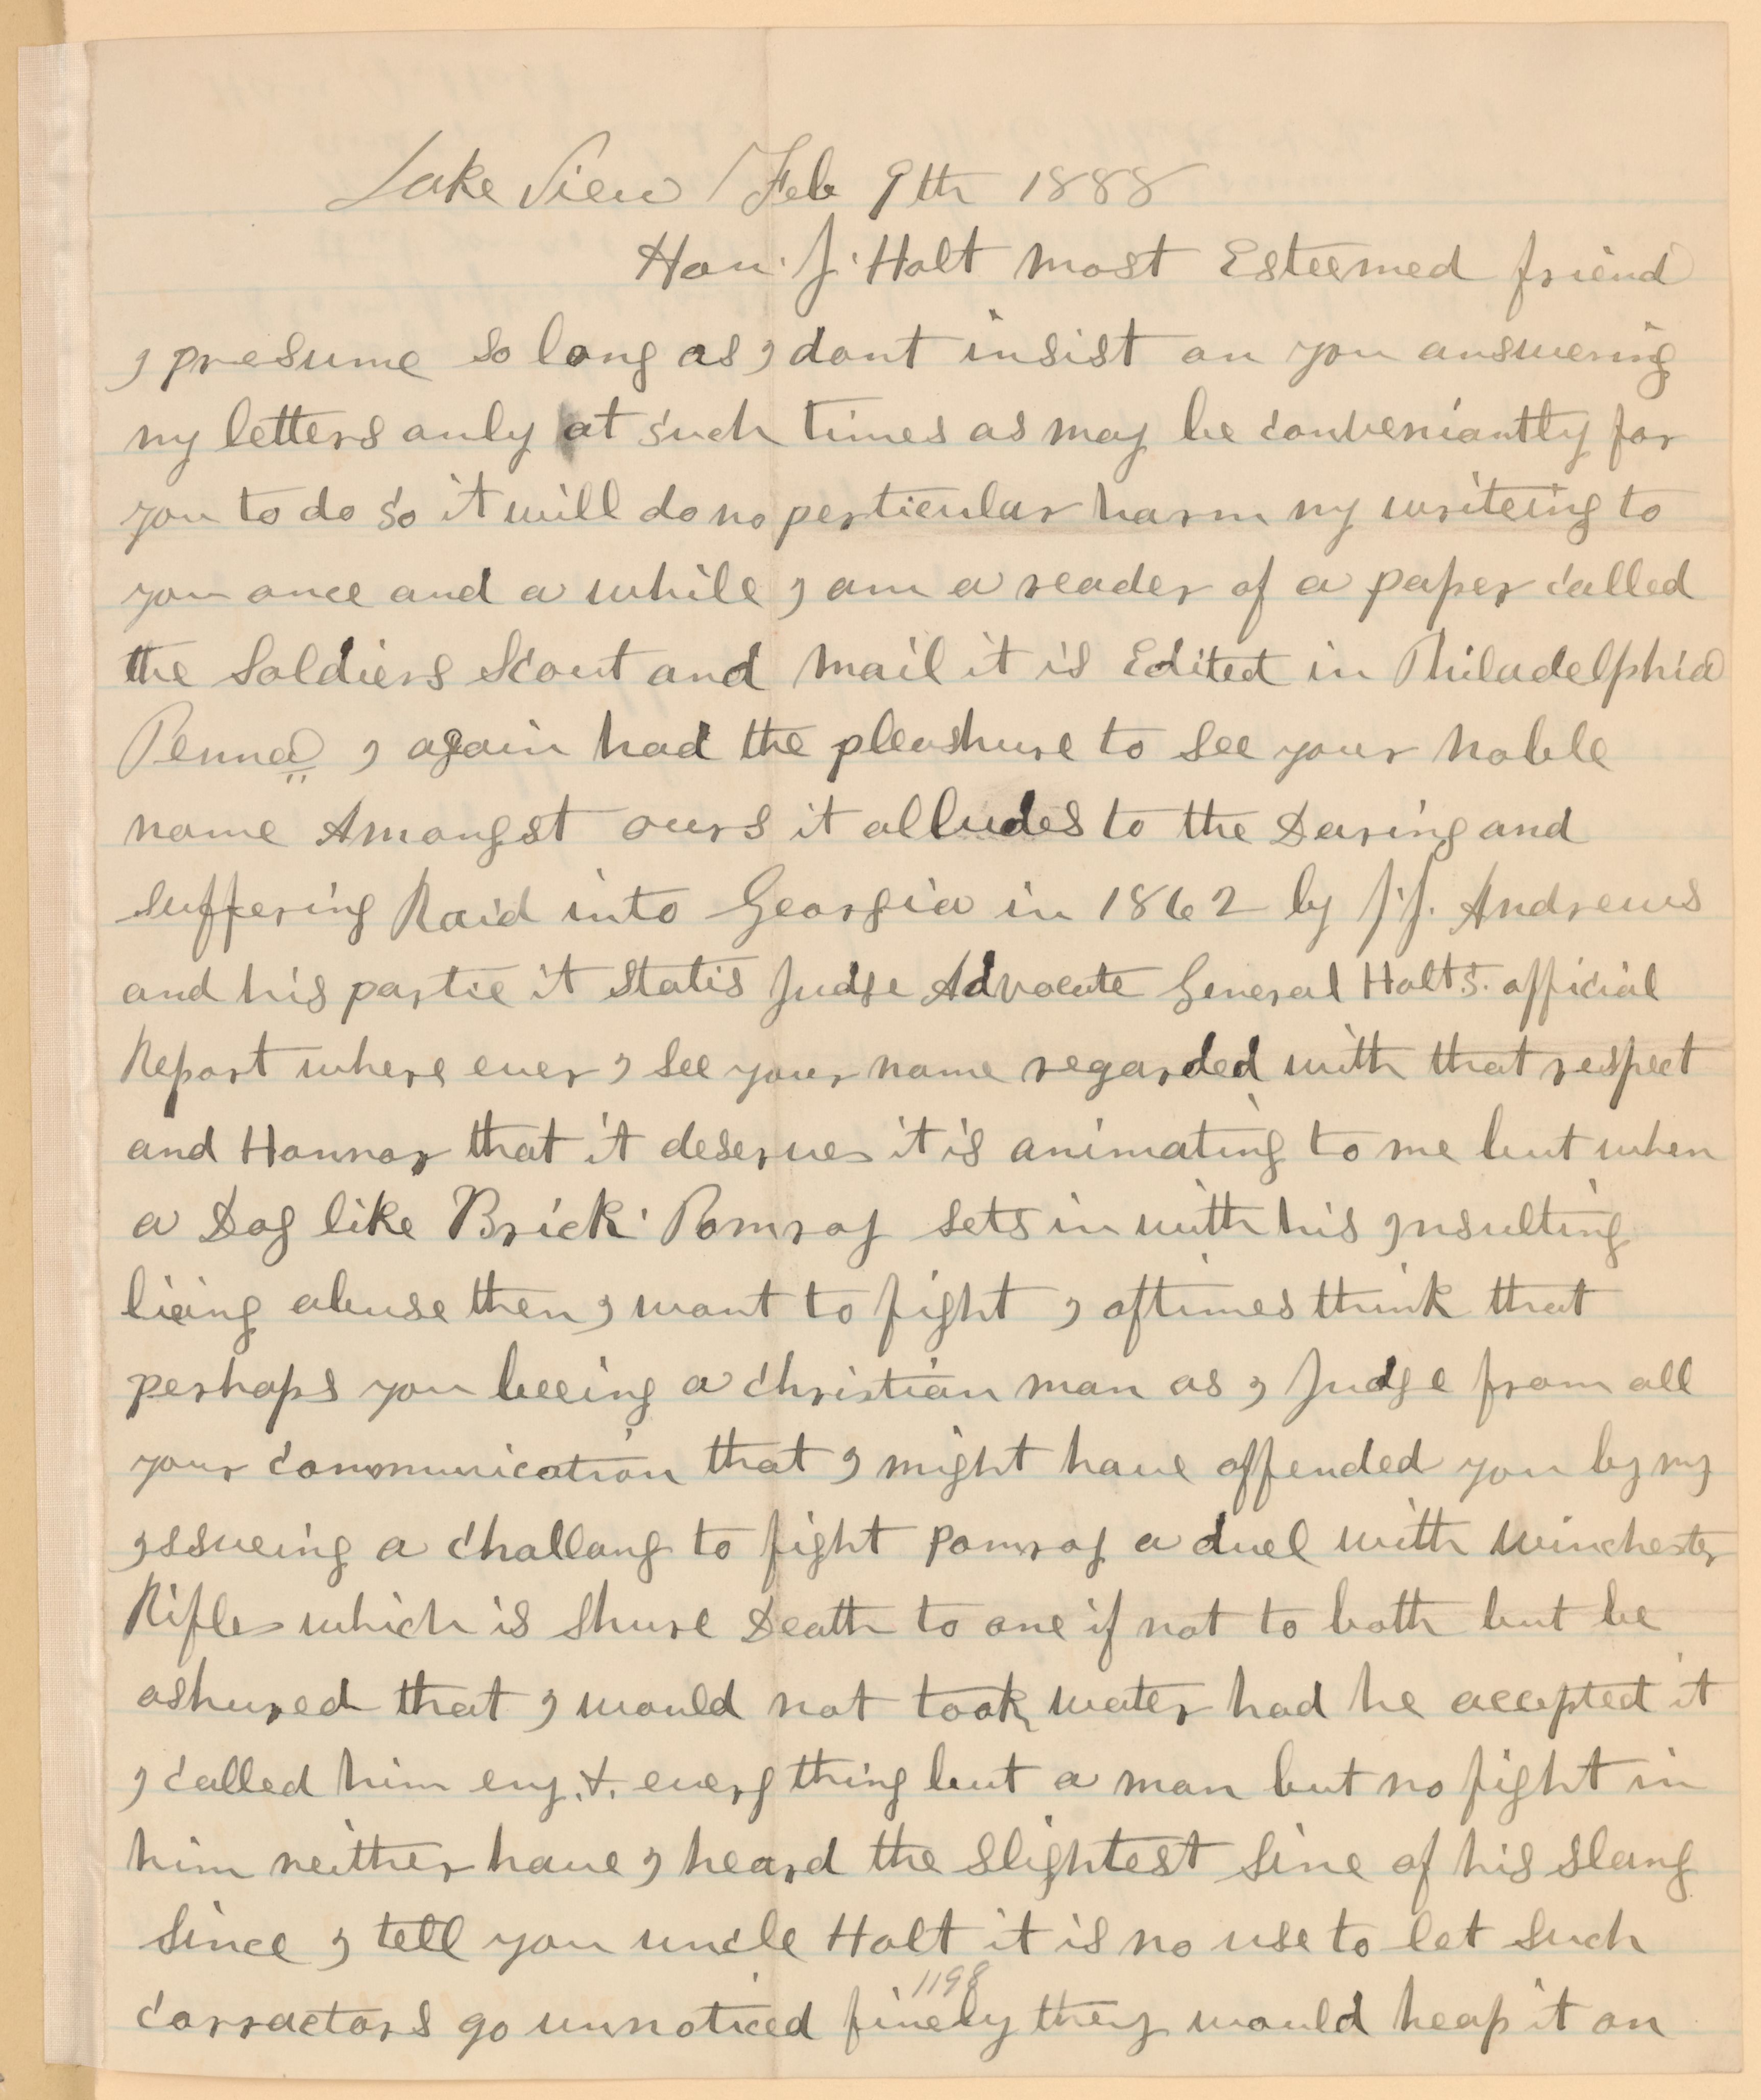 Lake View Feb 9th 1888
Hon. J. Holt most Esteemed friend
I presume so long as I dont insist on you answering
my letters only at such times as may be conveniantly for
you to do so it will do no perticular harm my writeing to
you once and a while I am a reader of a paper called
the Soldiers Scout and Mail it is Edited in Philadelphia
Penna I again had the pleashure to see your noble
name Amongst ours it alludes to the Daring and
suffering Raid into Georgia in 1862 by J.J. Andrews
and his partie it statis Judge Advocate General Holts. official
Report where ever I see your name regarded with that respect
and Honnor that it deserves it is animating to me but when
a Dog like Brick Pomroy sets in with his Insulting
lieing abuse then I want to fight I oftimes think that
perhaps you beeing a christian man as I Judge from all
your communication that I might have offended you by my
Issueing a challang to fight Pomroy a duel with Winchester
Rifles which is shure Death to one if not to both but be
ashured that I would not took water had he accepted it
I called him eny .&. every thing but a man but no fight in
him neither have I heard the slightest sine of his slang
since I tell you uncle Holt it is no use to let such
1198
carractors go unnoticed finely they would heap it on